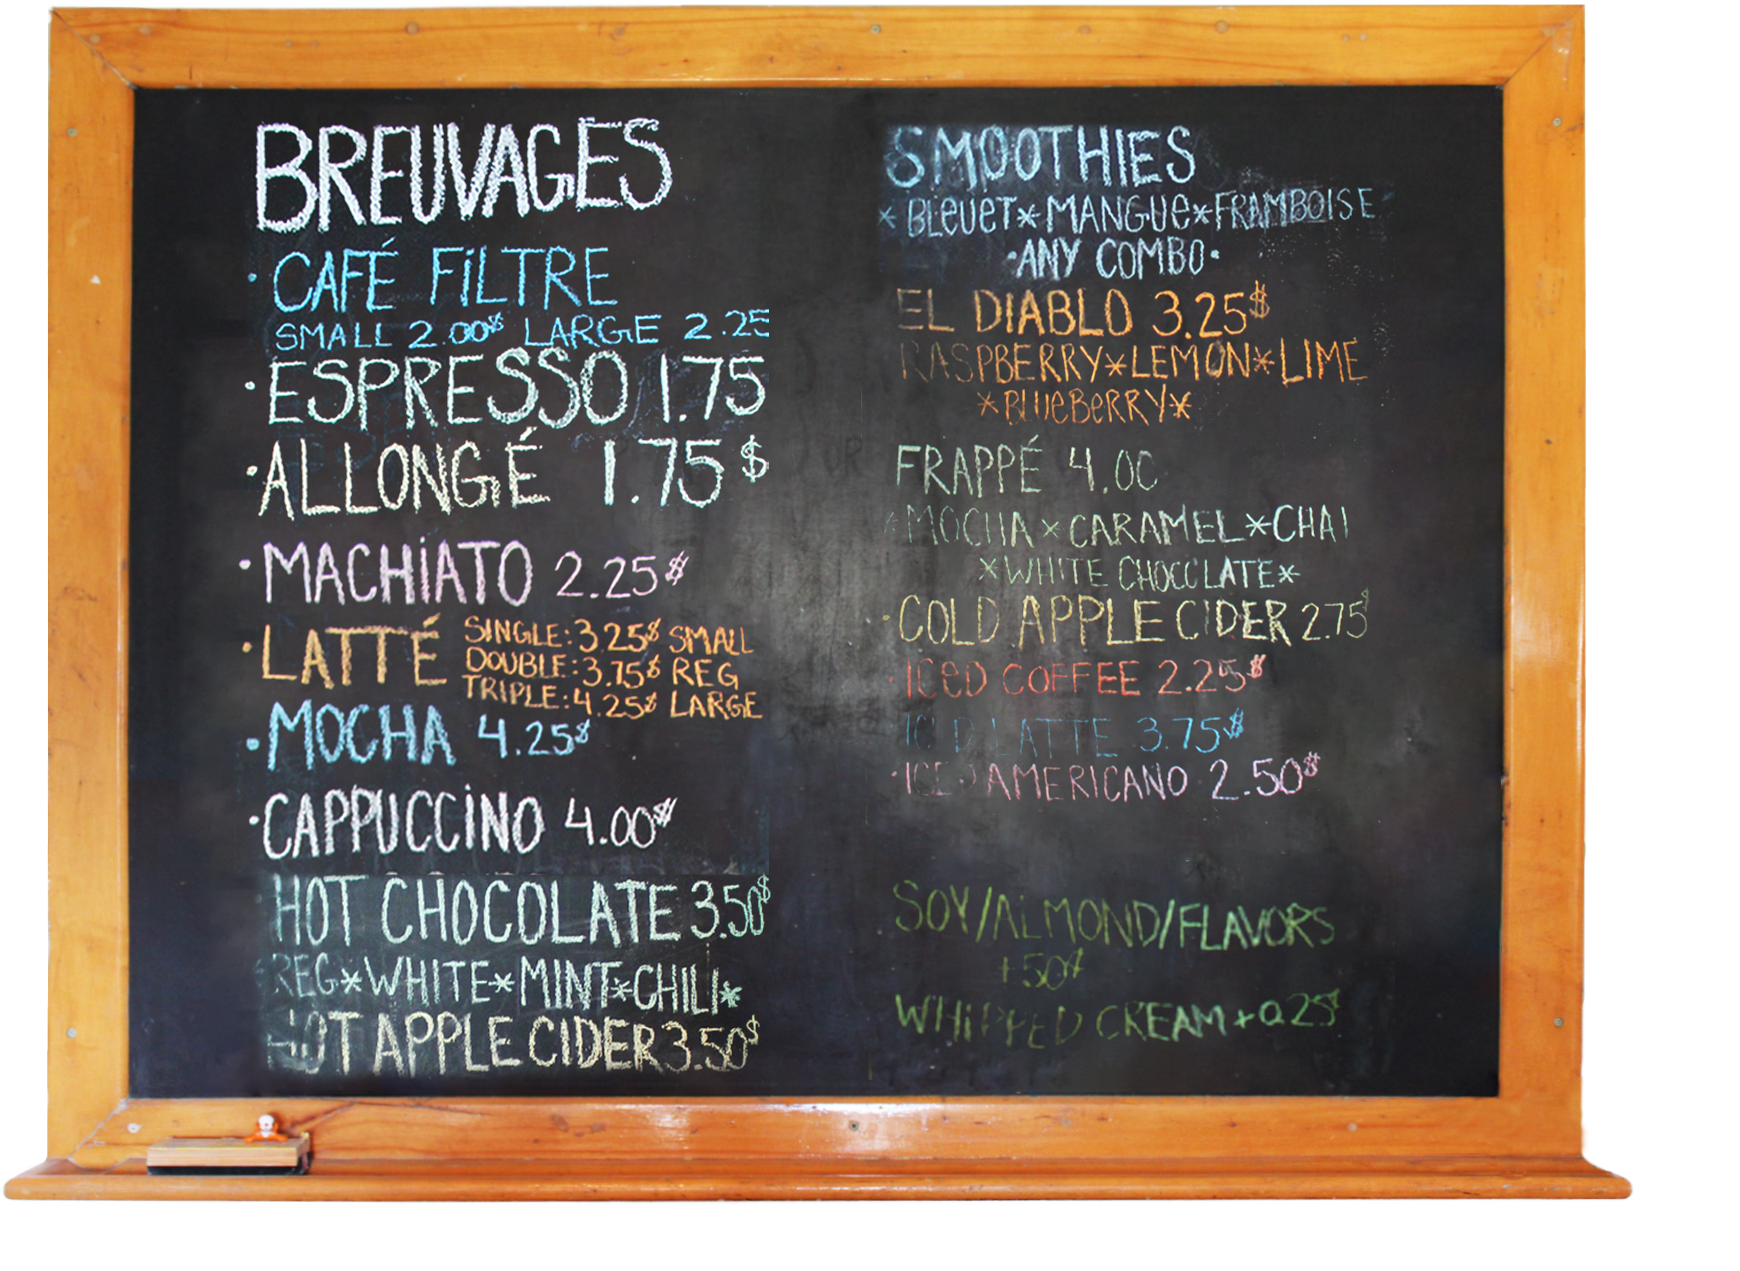 BREUVAGES
· CAFÉ FILTRE
SMALL 2.00$ LARGE 2.25
· ESPRESSO 1.75
· ALLONGÉ 1.75$
· MACHIATO 2.25$
· LATTÉ SINGLE: 3.25$ SMALL
DOUBLE: 3.75$ REG
TRIPLE: 4.25$ LARGE
· MOCHA 4.25$
· CAPPUCCINO 4.00$
HOT CHOCOLATE 3.50$
REG*WHITE*MINT*CHILI*
HOT APPLE CIDER 3.50$
SMOOTHIES
* BLEUET*MANGUE*FRAMBOISE
·ANY COMBO·
EL DIABLO 3.25$
RASPBERRY*LEMON*LIME
*BLUEBERRY*
FRAPPÉ 4.00
*MOCHA*CARAMEL*CHAI
*WHITE CHOCOLATE*
· COLD APPLE CIDER 2.75$
· ICED COFFEE 2.25$
ICED LATTE 3.75$
· ICED AMERICANO 2.50$
SOY/ALMOND/FLAVORS
+.50$
WHIPPED CREAM + 0.25$